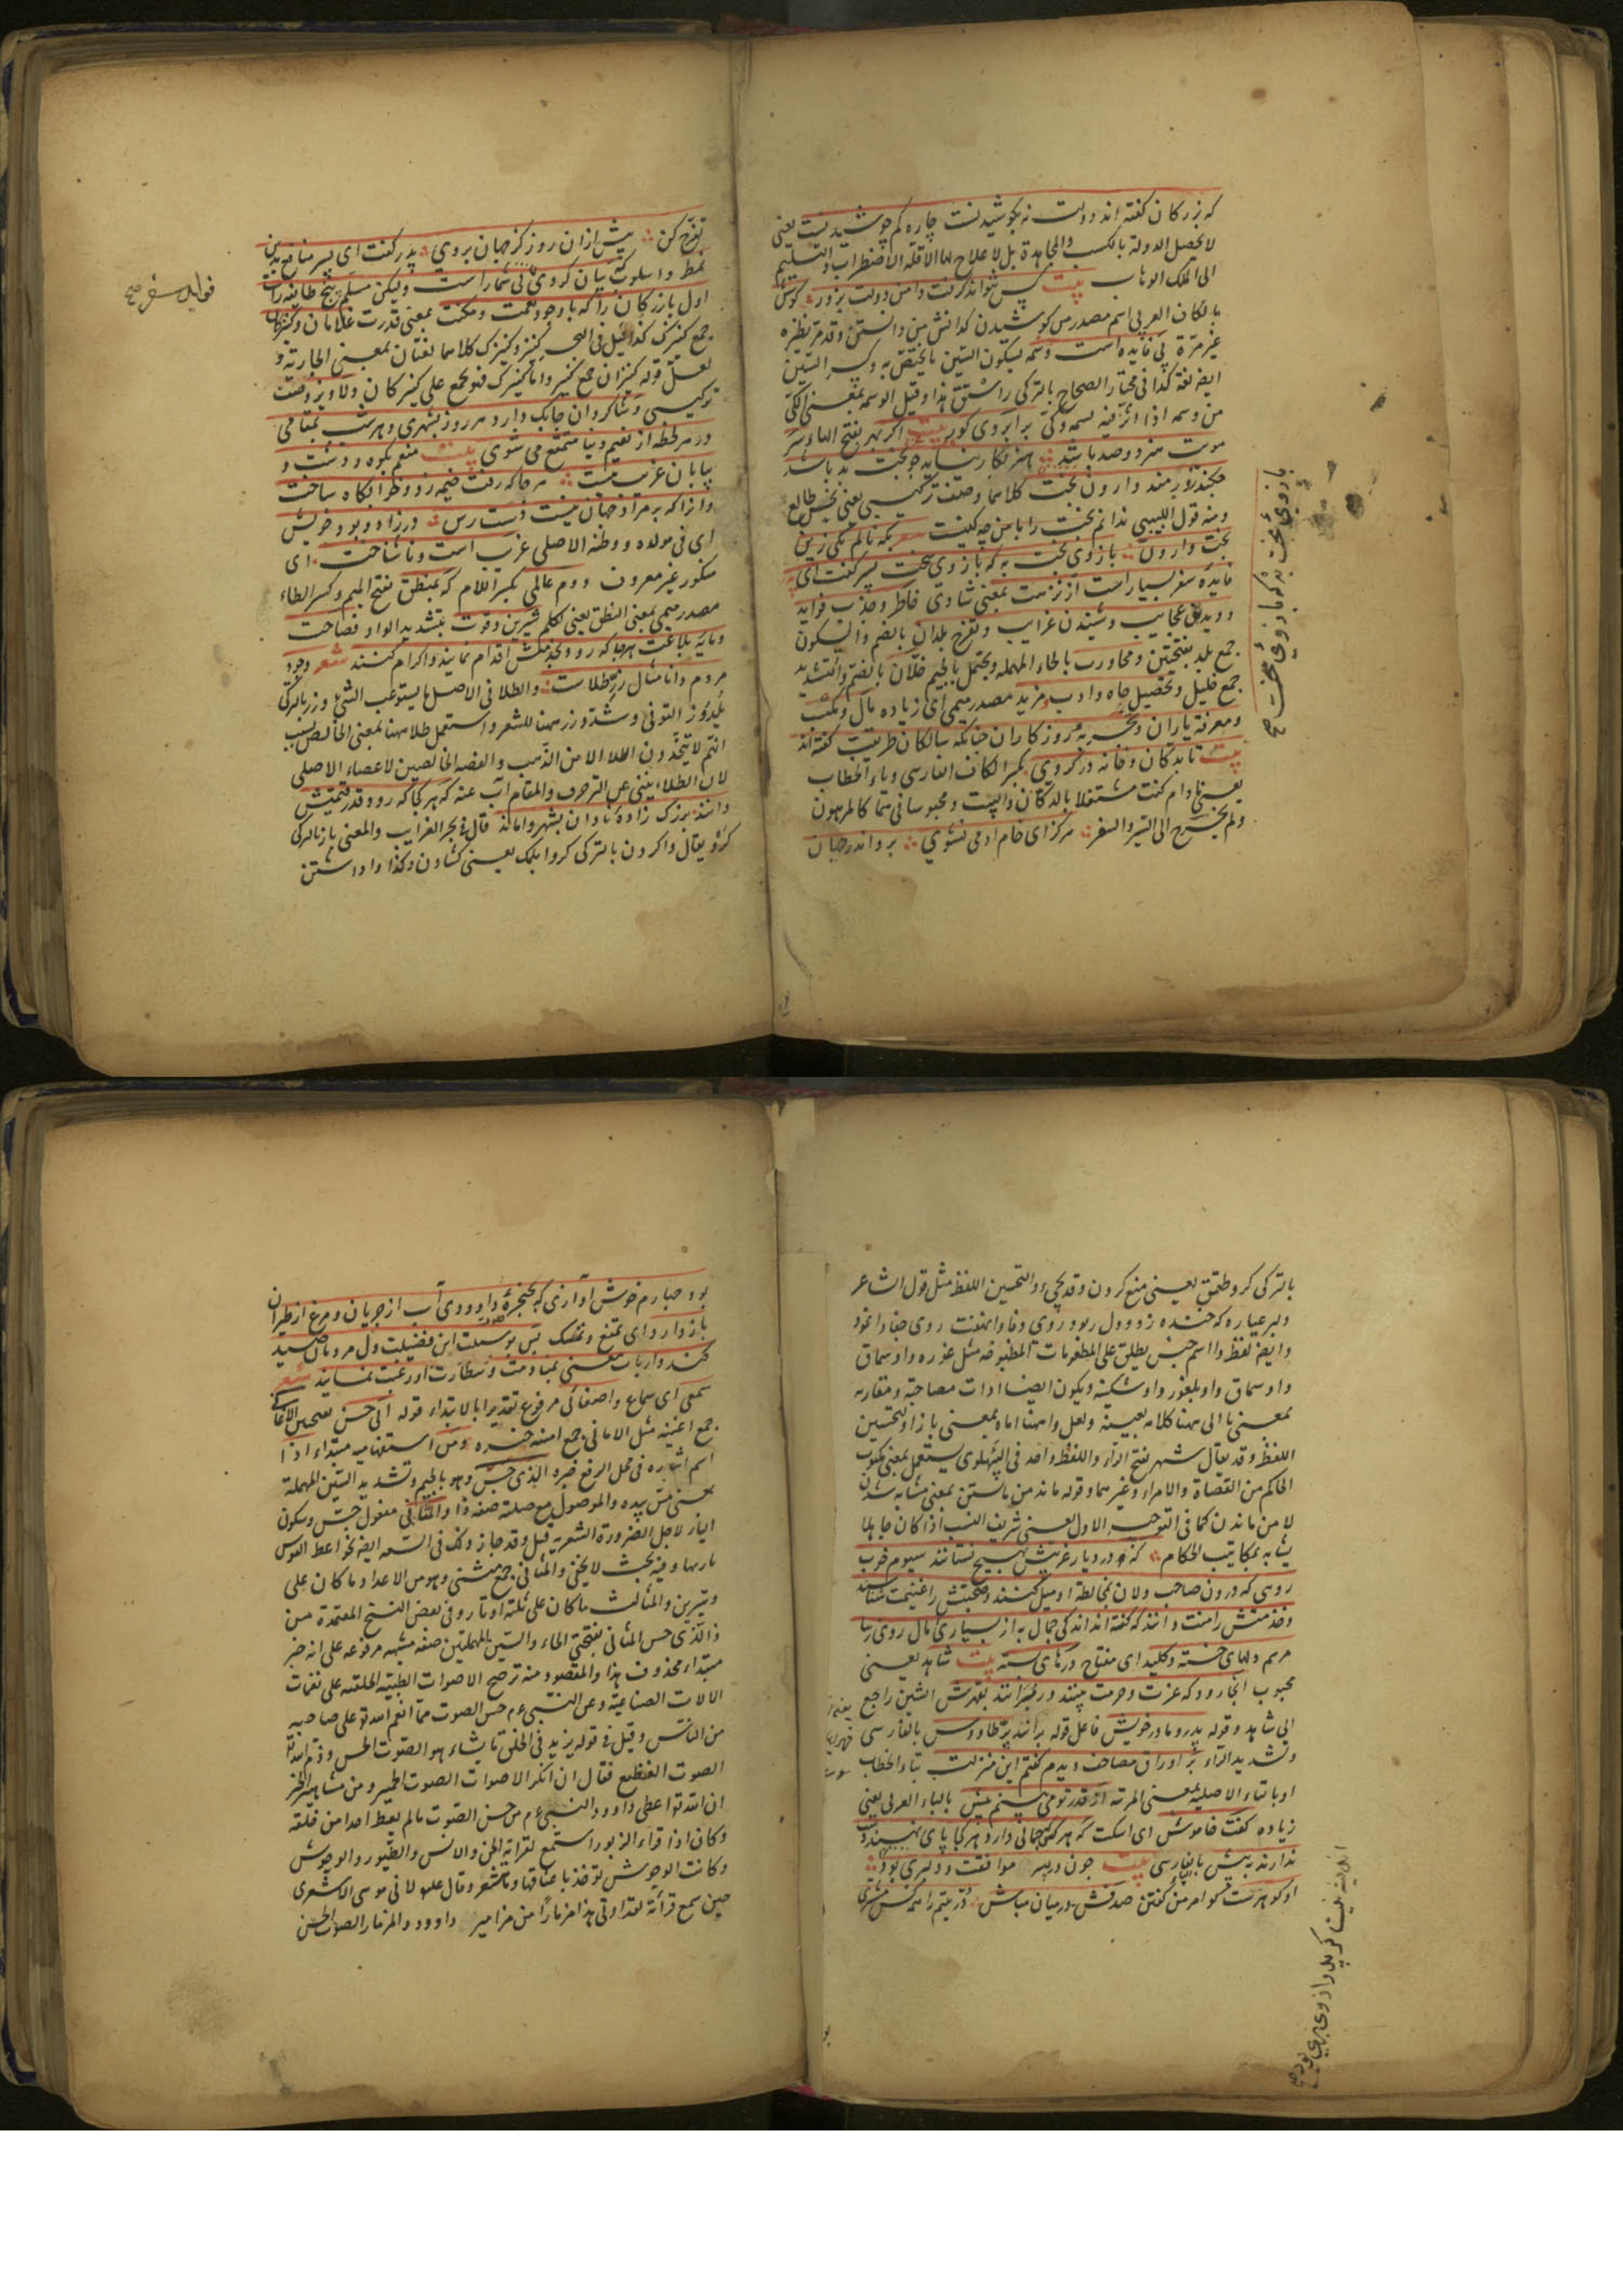 که بزرکان کفته اند دولت نه بکوشیدنست چاره کم جوشیدنست یعنی
لا یحصل الدولة بالکسب والمجاهدة بل لا علاج لها الا قلة الاضطراب والتسلیم
الی الملک الوهاب بیت کس نتواند کرفت دامن دولت بزور کوشش
بالکاف العربی اسم مصدر من کوشیدن کدانش من دانستن وقد مر نظیره
غیر مرة بی فایده است وسمه بسکون السین ما یختص به وبکسر السین
ایضا لغة کذا فی مختار الصحاح بالترکی راستق هذا وقیل الوسمة بمعنی الکی
من وسمه اذا اثر فیه بسمة وکی بر ابروی کور بیت اکر بهر بفتح الهاء سر
مویت هنر دو صد باشد هنر بکار نیاید چو بخت بد باشد
چکند زورمند وارون بخت کلاهما وصف ترکیبی یعنی نحس طالع
ومنه قول اللبیبی ندانم بخت را با من چه کینست بکه نالم بکی زین
بخت وارون بازوی بخت به که بازوی سخت پسر کفت ای پدر
فایده سفر بسیار است از نزهت بمعنی شادی خاطر وجذب فواید
ودیدن عجایب وشنیدن غرایب وتفرج بلدان بالضم والسکون
جمع بلد بفتحتین ومحاورت بالحاء المهملة ویحتمل بالجیم خلان بالضم والتشدید
جمع خلیل وتحصیل جاه وادب ومزید مصدر میمی ای زیاده مال ومکنت
ومعرفة یاران وتجربه روزکاران چنانکه سالکان طریقت کفته اند
بیت تا بدکان وخانه در کروی بکسر الکاف الفارسی ویاء الخطاب
یعنی مادام کنت مشتغلا بالدکان والبیت ومحبوسا فی کالمرهون
ولم یخرج الی السیر والسفر هرکز ای خام آدمی نشوی برو اندر جهان
بازوی بخت به که بازوی سخت صح
تفرج کن پیش ازان روز کز جهان بروی پدر کفت ای پسر منافع سفر بدین
نمط واسلوب که بیان کردی بی شمارست ولیکن مسلم پنج طایفه راست
اول بازرکان را که با وجود نعمت ومکنت بمعنی قدرت غلامان وکنیزکان
جمع کنیزک کذا قیل فی البحر کنیز وکنیزک کلاهما لغتان بمعنی الجاریة و
لعل قوله کنیزان جمع کنیز واما کنیزک فهو یجمع علی کنیزکان ودلاویز وصف
ترکیبی وشاکردان چابک دارد هر روز بشهری وهر شب بمقامی
در هر لحظه از نعیم دنیا متمتع می شوی بیت منعم بکوه ودشت و
بیابان غریب نیست هر جا که رفت خیمه زد وخوابکاه ساخت
وانرا که بر مراد جهان نیست دست رس در زاد وبود خویش
ای فی مولده ووطنه الاصلی غریب است وناشناخت ای
منکور غیر معروف دوم عالمی بکسر اللام که بمنطق بفتح المیم وکسر الطاء
مصدر میمی بمعنی النطق یعنی بکلام شیرین وقوت بتشدید الواو فصاحت
ومایه بلاغت هر جا که رود بخدمتش اقدام نمایند واکرام کنند شعر وجود
مردم دانا مثال زر طلاست والطلا فی الاصل ما یستوعب الشئ وزر بالترکی
یلدوز التونی وشدد زر ههنا للشعر واستعمل طلا ههنا بمعنی الخالص بسبب
انهم لا یتخذون الطلاء الا من الذهب والفضه الخالصین لاعضاء الاصلی
لان الطلاء ینبئ عن الترخرف والمقام آب عنه که هر کجا که رود قدر وقیمتش
دانند بزرک زاده نادان بشهر وا ماند قال فی بحر الغرایب والمعنی باز بالترکی
کرو یقال وا کردن بالترکی کروا یلمک یعنی کشادن وکذا وا داشتن
فواید سفر صح
بالترکی کرو طوتمق یعنی منع کردن وقد یجئ وا لتحسین اللفظ مثل قول الشاعر
دلبر عیاره که خنده زد ودل ربود روی وفا وا نهفت روی جفا وا نمود
وایضا لفظ وا اسم جنس یطلق علی المطعومات المطبوخه مثل غوره وا وسماق
وا وسماق وا وبلغور وا وشکنبه ویکون ایضا ادات مصاحبة ومقارنه
بمعنی با الی ههنا کلامه بعینه ولعل وا ههنا اما بمعنی باز او لتحسین
اللفظ وقد یقال شهر بفتح الراء واللفظ واحد فی البهلوی یستعمل بمعنی مکتوب
الحاکم من القضاة والامراء وغیرهما وقوله ماند من مانستن بمعنی مشابه شدن
لا من ماندن کما فی التوجیه الاول یعنی شریف النسب اذا کان جاهلا
یشابه بمکاتیب الحکام که در دیار غریبش بهیچ نستانند سیوم خوب
روئی که درون صاحب دلان بمخالطة او میل کنند وصحبتش را غنیمت شناسند
وخدمتش را منت دانند که کفته اند اندکی جمال به از بسیاری مال روی زیبا
مرهم دلهای خسته وکلید ای مفتاح درهای بسته بیت شاهد یعنی
محبوب آنجا رود که عزت وحرمت بیند ور برانند بقهرش الشین راجع
الی شاهد وقوله پدر ومادر خویش فاعل قوله برانند پر طاووس بالفارسی
وتشدید الراء بر اوراق مصاحف دیدم کفتم این منزلت بتاء الخطاب
او بتاء الاصلیه بمعنی المرتبه از قدر تو می بینم بیش بالباء العربی یعنی
زیاده کفت خاموش ای اسکت که هر کس که جمالی دارد هر کجا پای نهد
ندارند به پیش بالفارسی بیت چون در پسر موافقت ودلبری بود
او کوهرست کو صدفش در میان مباش در یتیم را همه کس مشتری
بود چهارم خوش آوازی که بحنجره داوودی آب از جریان ومرغ از طیران
باز دارد ای تمنع وتمسک پس بوسیلت این فضیلت دل مردمان صید
کند وارباب معنی بمنادمت او رغبت نمایند شعر
سمعی ای سماع واصغائی مرفوع تقدیرا بالابتداء قوله الی حسن الاغانی
جمع اغنیه مثل الامانی جمع امنیه خبره ومن استفهامیه مبتداء ذا
اسم اشاره فی محل الرفع خبره الذی جس وهو بالجیم وتشدید السین المهملة
بمعنی مس بیده والموصول مع صلته صفة ذا والمثانی مفعول جس وسکون
الیاء لاجل الضرورة الشعریه قیل وقد جاز ذلک فی السعه ایضا نحو اعط القوس
باریها وفیه بحث لا یخفی والمثانی جمع مثنی وهو من الاعداد ما کان علی
وتیرین والمثالث ما کان علی ثلثة اوتار وفی بعض النسخ المعتمدة من
ذا الذی حس المثانی بفتحتی الحاء والسین المهملتین صفة مشبهه مرفوعه علی انه خبر
مبتداء محذوف هذا والمقصود منه ترجیح الاصوات الطیبة الخلقیه علی نغمات
الالات الصناعیة وعن النبی ءم حسن الصوت مما انعم الله تع علی صاحبه
من الناس وقیل فی قوله یزید فی الخلق ما یشاء هو الصوت الحسن وذم الله تع
الصوت الفظیع فقال ان انکر الاصوات الصوت الحمیر ومن مشاهیر الخبر
ان الله تع اعطی داوود النبی ءم من حسن الصوت ما لم یعط احدا من خلقه
وکان اذا قراء الزبور استمع لقراءته الجن والانس والطیور والوحوش
وکانت الوحوش تؤخذ باعناقها وما تنفر وقال علیه لابی موسی الاشعری
حین سمع قرأته لقد اوتی هذا مزمارا من مزامیر داوود والمزمار الصوت الحسن